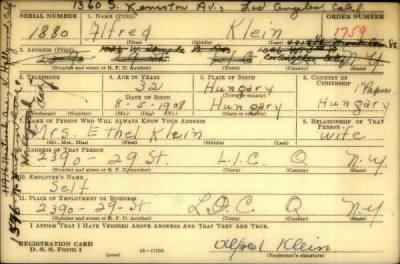 1360 S. Keniston Av., Los Angeles Calif
SERIAL NUMBER 1. NAME (Print) ORDER NUMBER
1880 Alfred Klein 1759
(First) (Middle) (Last)
2. ADDRESS (Print)
(Number and street or R. F. D. number) (Town) (County) (State)
3. TELEPHONE 4. AGE IN YEARS 5. PLACE OF BIRTH 6. COUNTRY OF CITIZENSHIP
32 Hungary 1st Papers
DATE OF BIRTH
8-5-1908 Hungary Hungary
(Exchange) (Number) (Mo.) (Day) (Yr.) (State or country)
7. NAME OF PERSON WHO WILL ALWAYS KNOW YOUR ADDRESS 8. RELATIONSHIP OF THAT PERSON
Mrs. Ethel Klein Wife
(Mr., Mrs., Miss) (First) (Middle) (Last)
9. ADDRESS OF THAT PERSON
2390-29 St. L.I.C. Q N.Y
(Number and street or R. F. D. number) (Town) (County) (State)
10. EMPLOYER'S NAME
Self
11. PLACE OF EMPLOYMENT OR BUSINESS
2390-29-St L.I.C. Q N.Y
(Number and street or R. F. D. number) (Town) (County) (State)
I AFFIRM THAT I HAVE VERIFIED ABOVE ANSWERS AND THAT THEY ARE TRUE.
REGISTRATION CARD
D. S. S. Form 1 (over) 16-17105
Alfred Klein
(Registrant's signature)